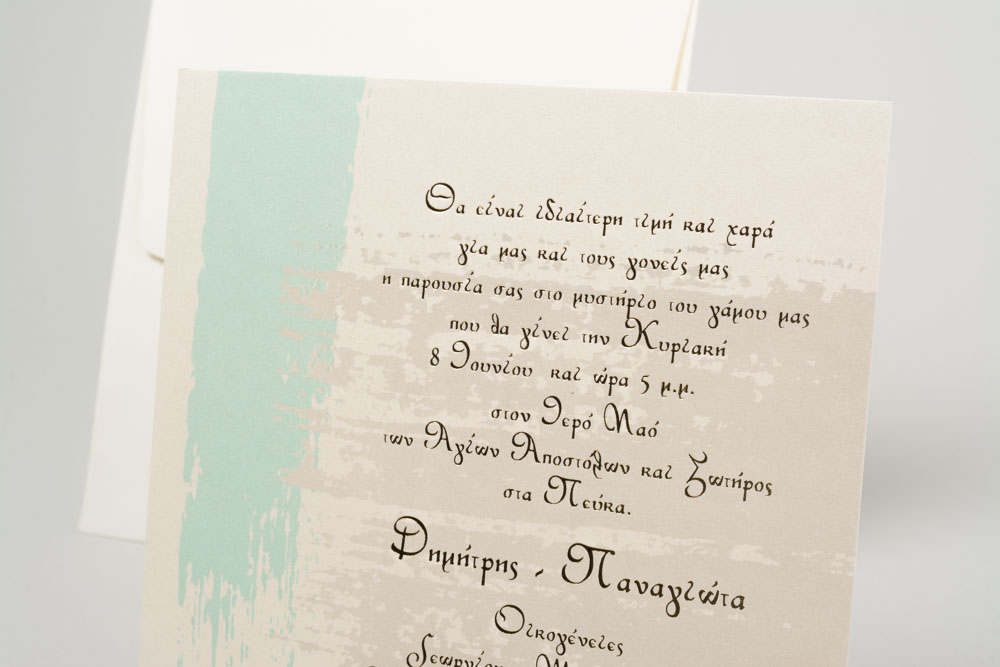 Θα είναι ιδιαίτερη τιμή και χαρά
για μας και τους γονείς μας
η παρουσία σας στο μυστήριο του γάμου μας
που θα γίνει την Κυριακή
8 Ιουνίου και ώρα 5 μ.μ.
στον Ιερό Ναό
των Αγίων Αποστόλων και Σωτήρος
στα Πεύκα.
Δημήτρης - Παναγιώτα
Οικογένειες